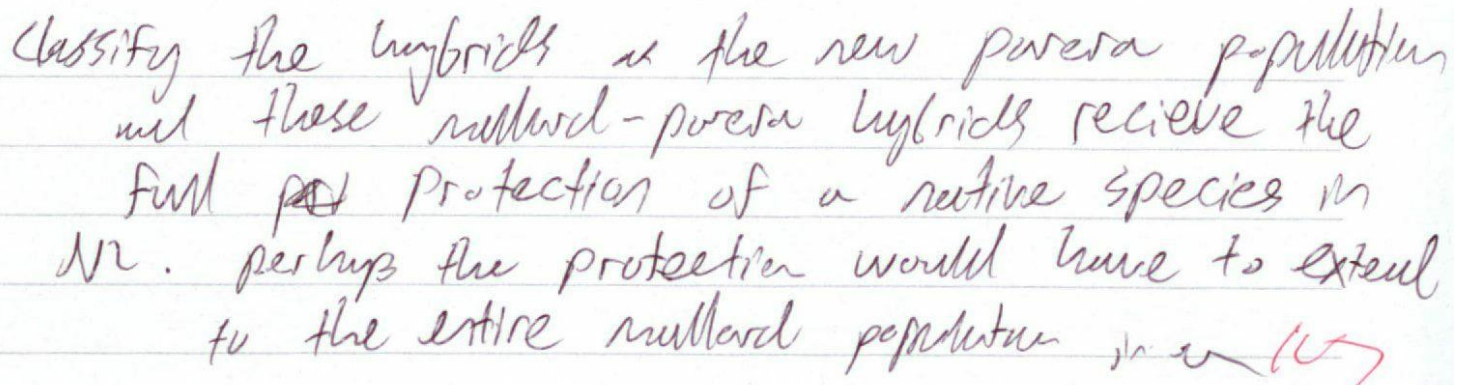 Classify the hybrids as the new parera population
and these mallard-parera hybrids recieve the
full protection of a native species in
NZ. perhaps the protection would have to extend
to the entire mallard population in